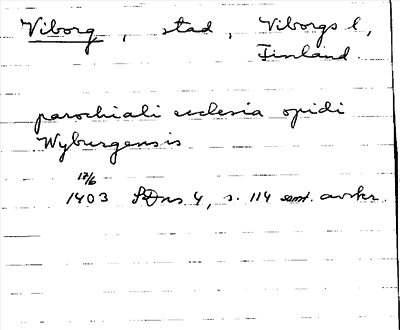 Viborg, stad, Viborgs l,
Finland
parochiali ecclesia opidi
Wyburgensis
17/6
1403 SDns 4, s. 114 samt. avskr.